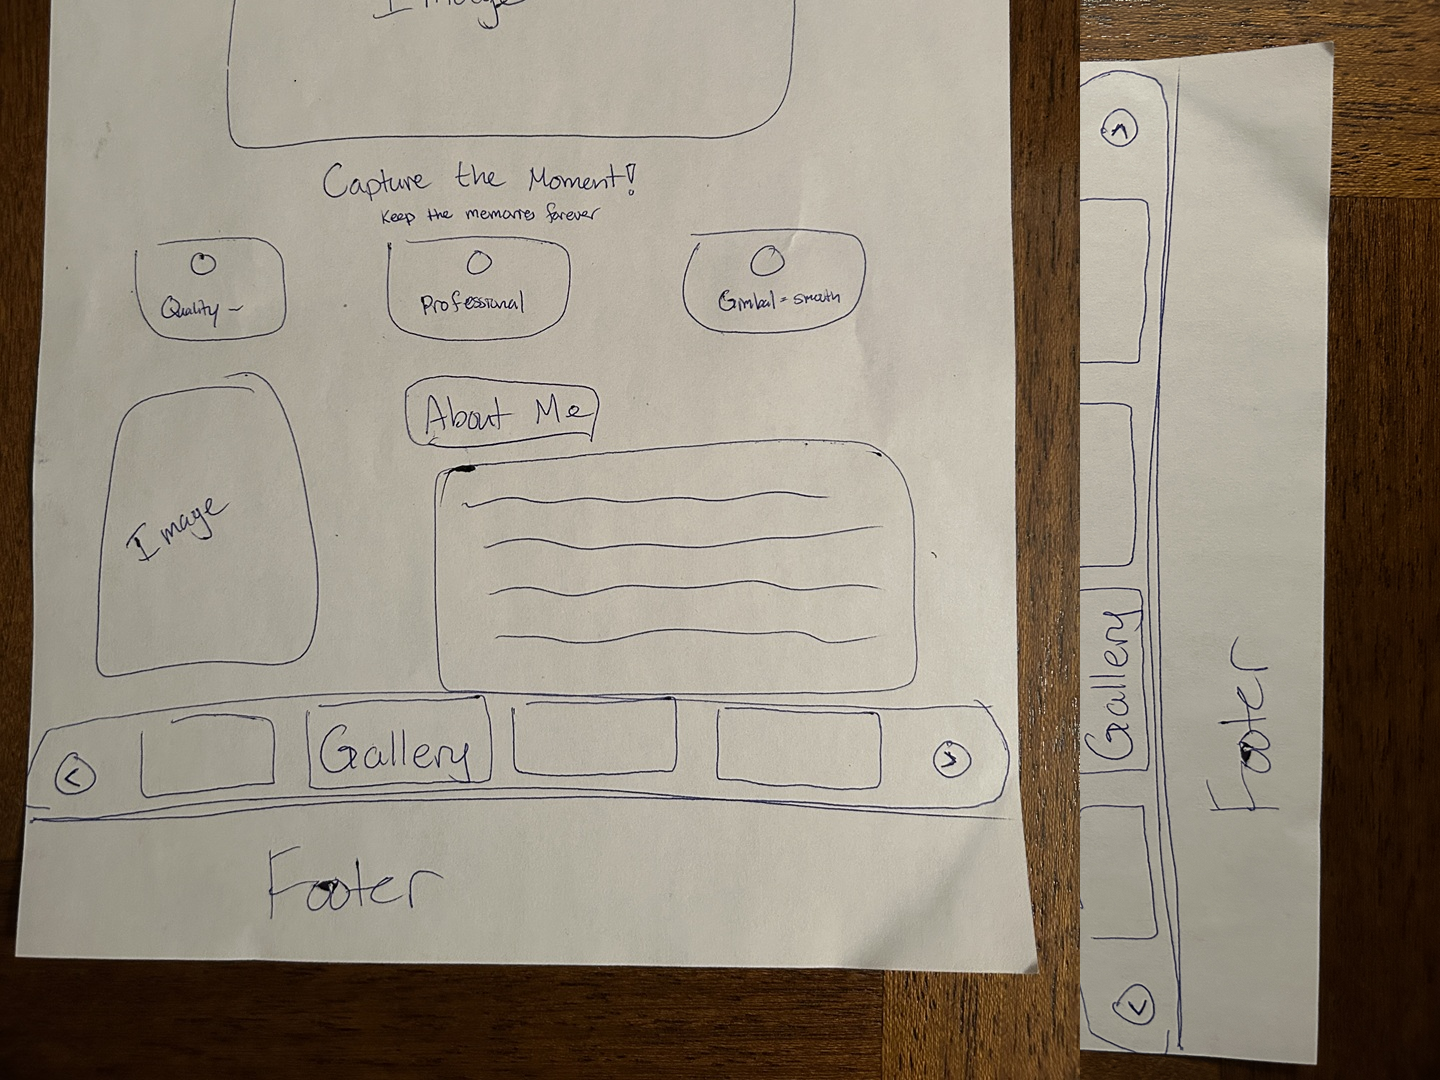 Image
Capture the Moment!
Keep the memories forever
Quality ~
Professional
Gimbal = smooth
About Me
Image
<
Gallery
>
Footer
>
Gallery
<
Footer